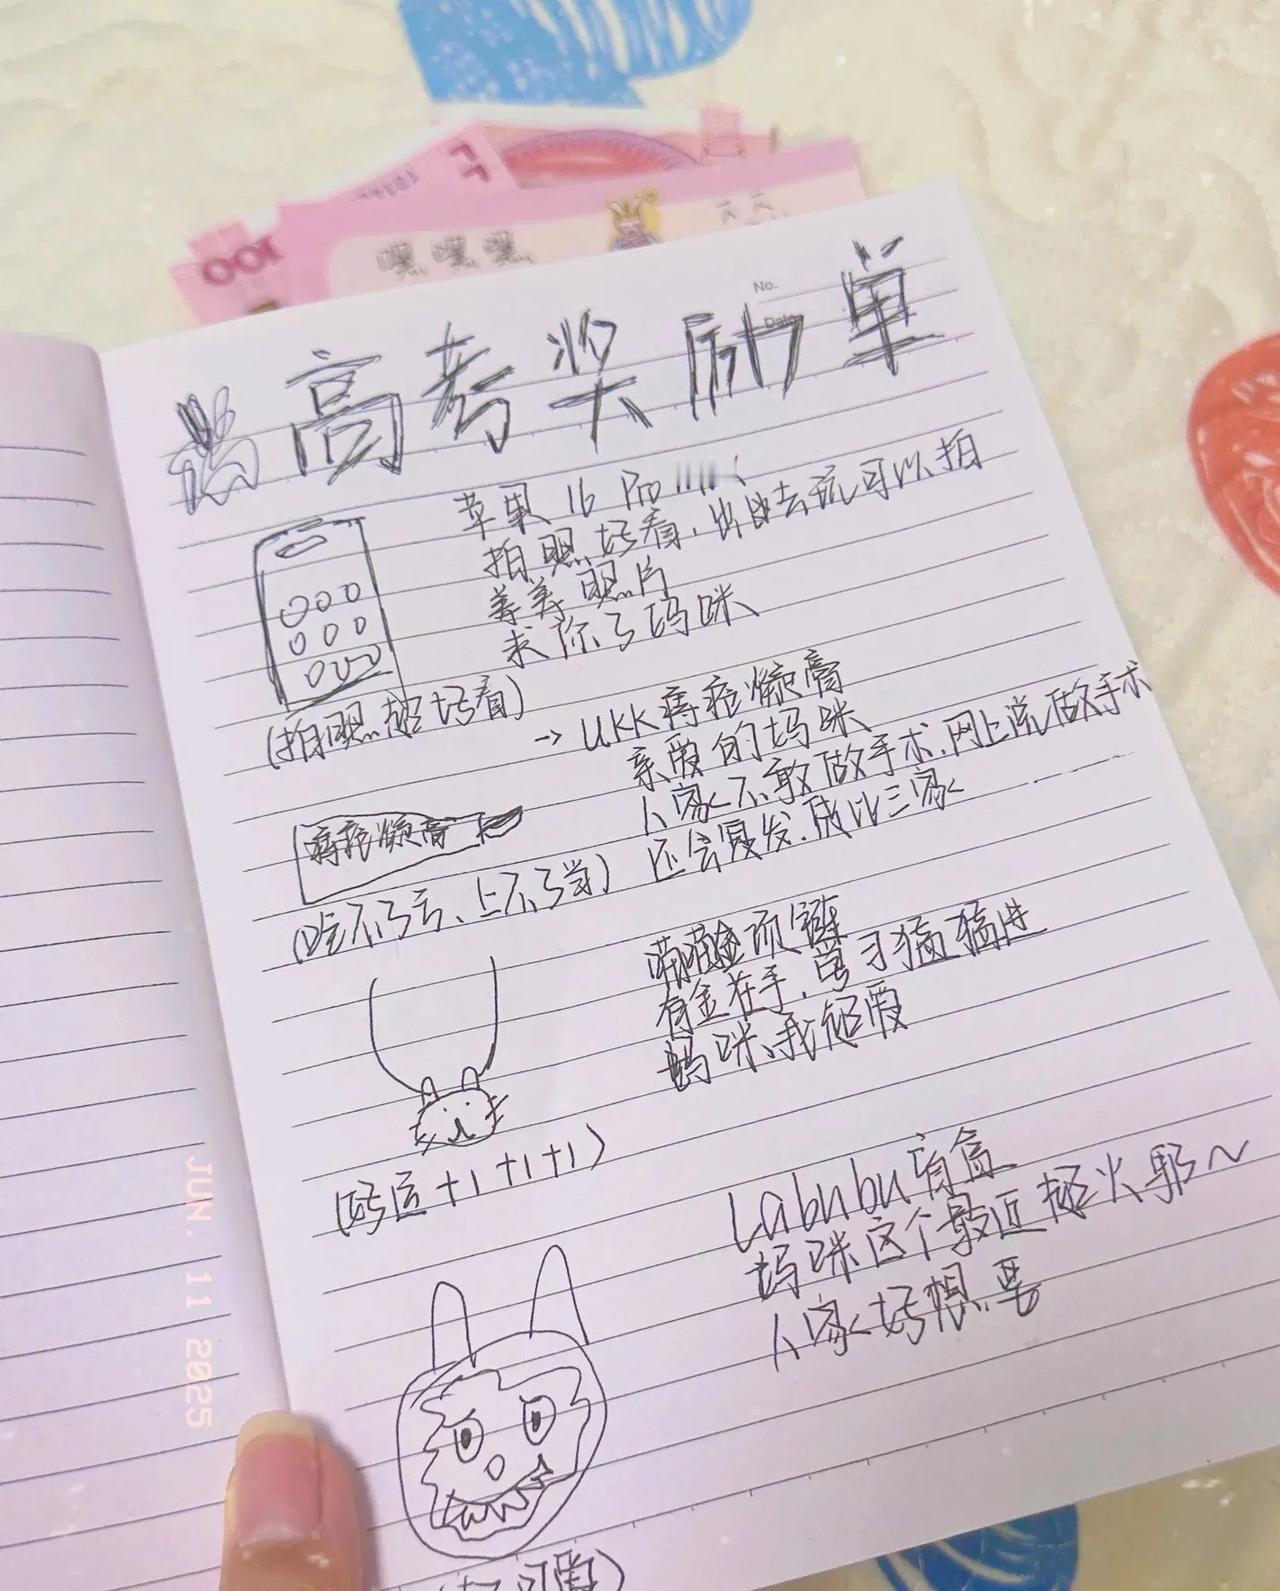 100
嘿嘿嘿
No.
Date
高考奖励单
苹果16 Pro
拍照好看,出去玩可以拍
美美照片
求你了妈咪
(拍照超好看)
→ UKK痔疮凝膏
亲爱的妈咪
人家不敢做手术,网上说做手术
还会复发,成比三家
痔疮凝膏
(吃不了亏、上不了当)
喵喵金项链
有金在手,学习猛猛进
妈咪、我超爱
(好运+1+1+1)
Labubu盲盒
妈咪这个最近超火耶~
人家好想要
JUN. 11 2025